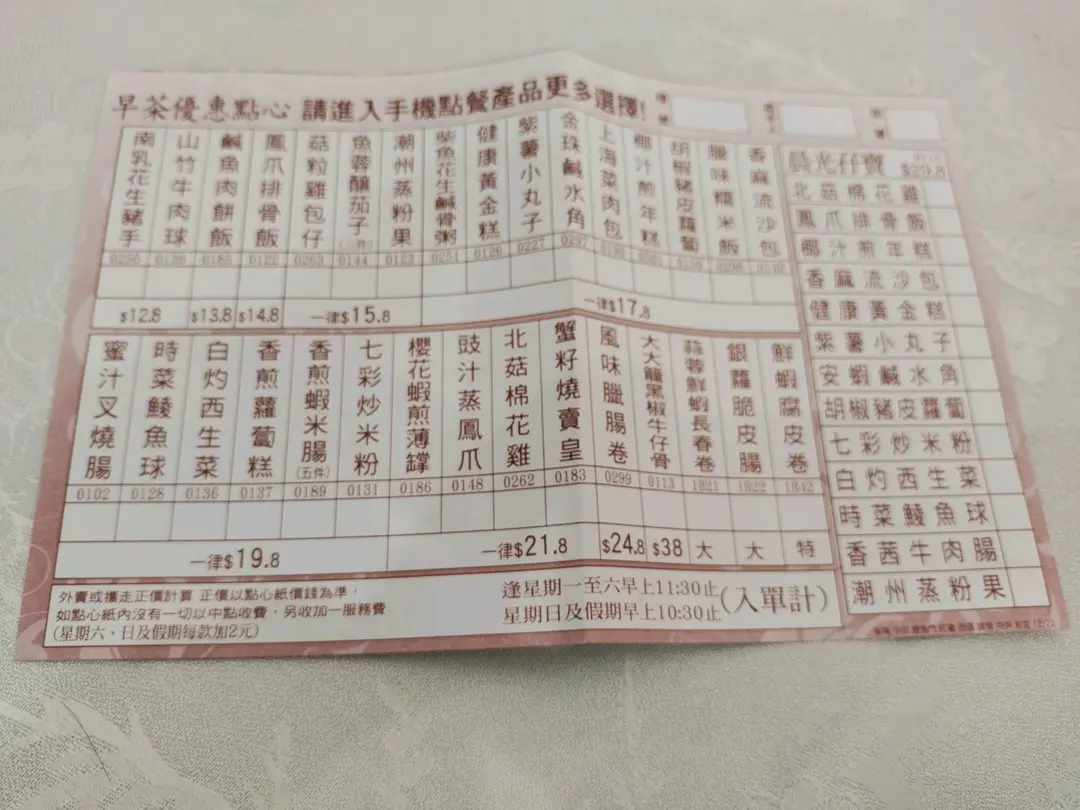 早茶優惠點心 請進入手機點餐產品更多選擇!
南乳花生豬手
山竹牛肉球
鹹魚肉餅飯
鳳爪排骨飯
菇粒雞包仔
魚蓉釀茄子
潮州蒸粉果
柴魚花生鹹骨粥
健康黃金糕
紫薯小丸子
金珠鹹水角
上海菜肉包
椰汁煎年糕
胡椒豬皮蘿蔔
臘味糯米飯
香麻流沙包
0256 0138 0185 0122 0263 0144 0123 0251 0126 0227 0297
$12.8 $13.8 $14.8 一律$15.8 一律$17.8
蜜汁叉燒腸
時菜鯪魚球
白灼西生菜
香煎蘿蔔糕
香煎蝦米腸(五件)
七彩炒米粉
櫻花蝦煎薄罉
豉汁蒸鳳爪
北菇棉花雞
蟹籽燒賣皇
風味臘腸卷
大大籠黑椒牛仔骨
蒜蓉鮮蝦長春卷
銀蘿脆皮腸
鮮蝦腐皮卷
0102 0128 0136 0137 0189 0131 0186 0148 0262 0183 0299 0113 1821 1822 1842
一律$19.8 一律$21.8 $24.8 $38 大 大 特
外賣或攜走正價計算 正價以點心紙價錢為準,
如點心紙內沒有一切以中點收費,另收加一服務費
(星期六、日及假期每款加2元)
逢星期一至六早上11:30止
星期日及假期早上10:30止
(入單計)
晨光孖寶 $29.8
北菇棉花雞
鳳爪排骨飯
椰汁煎年糕
香麻流沙包
健康黃金糕
紫薯小丸子
安蝦鹹水角
胡椒豬皮蘿蔔
七彩炒米粉
白灼西生菜
時菜鯪魚球
香茜牛肉腸
潮州蒸粉果